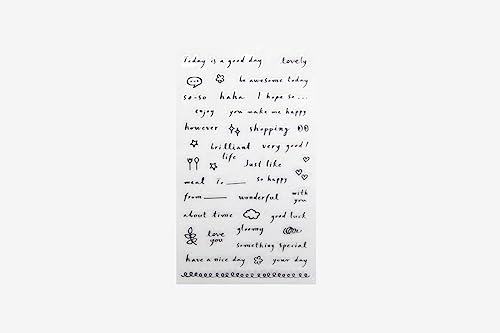 Today is a good day lovely
be awesome today
so-so haha I hope so...
enjoy you make me happy
however shopping
brilliant very good!
life Just like
meal To so happy
from wonderful with you
about time good luck
love you gloomy
something special
have a nice day your day